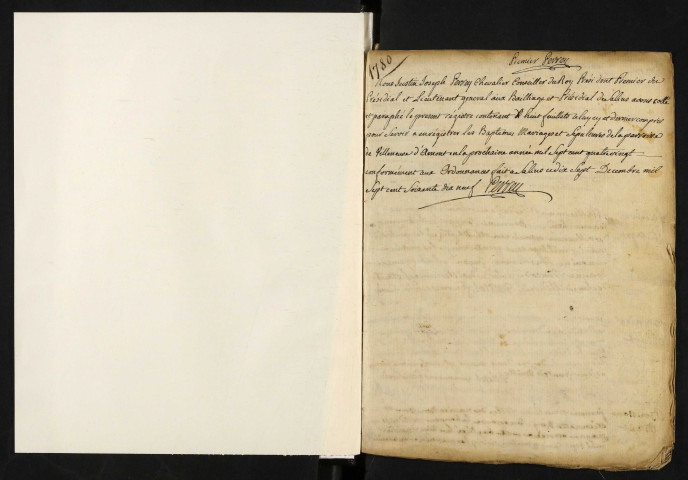 Premier Perrey
1780
Nous Justin Joseph Perrey Chevalier Conseiller du Roy President Premier du
Présidial et Lieutenant general aux Bailliage et Présidial de Salins avons cotté
et paraphé le present registre contenant huit feuillets celuy cy et dernier compris
pour servir a enregistrer les Baptemes Mariages et Sepultures de la paroisse
de Villeneuve d'Amont en la prochaine année mil Sept cent quatrevingt
conformément aux Ordonnances fait a Salins ce dix Sept Decembre mil
Sept cent Soixante dix neuf Perrey